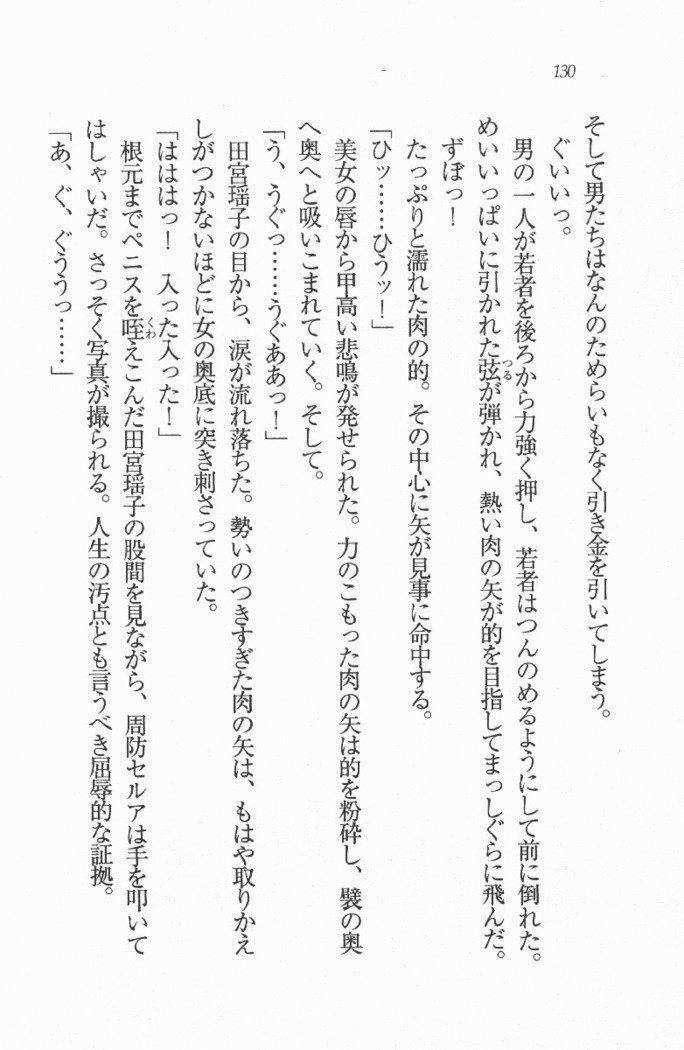 130
そして男たちはなんのためらいもなく引き金を引いてしまう。
ぐいいっ。
男の一人が若者を後ろから力強く押し、若者はつんのめるようにして前に倒れた。
めいいっぱいに引かれた弦が弾かれ、熱い肉の矢が的を目指してまっしぐらに飛んだ。
ずぼっ！
たっぷりと濡れた肉の的。その中心に矢が見事に命中する。
「ひッ……ひうッ！」
美女の唇から甲高い悲鳴が発せられた。力のこもった肉の矢は的を粉砕し、襞の奥
へ奥へと吸いこまれていく。そして。
「う、うぐっ……うぐああっ！」
田宮瑶子の目から、涙が流れ落ちた。勢いのつきすぎた肉の矢は、もはや取りかえ
しがつかないほどに女の奥底に突き刺さっていた。
「はははっ！　入った入った！」
根元までペニスを咥えこんだ田宮瑶子の股間を見ながら、周防セルアは手を叩いて
はしゃいだ。さっそく写真が撮られる。人生の汚点とも言うべき屈辱的な証拠。
「あ、ぐ、ぐううっ……」